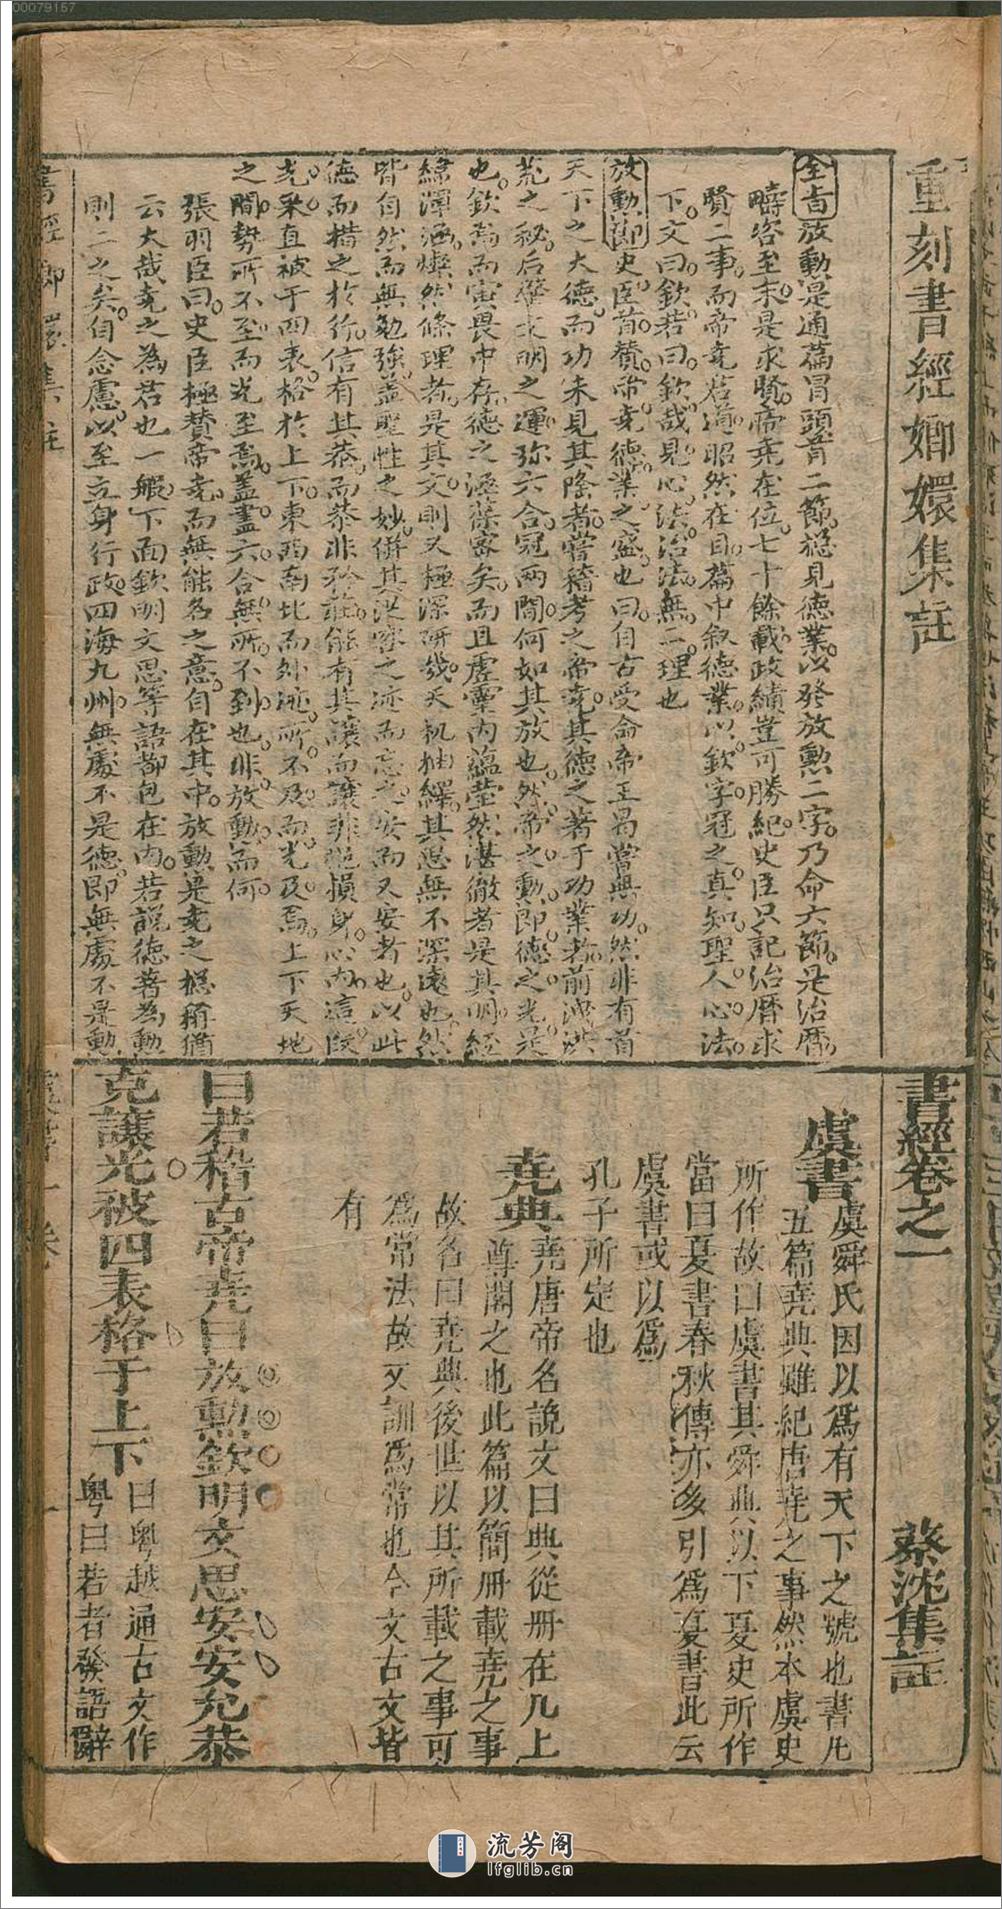 00079157
重刻書經嫏嬛集註
全旨放勳是通篇冒頭首二節總見德業以發放勲一字乃命六節是治曆
疇咨至末是求賢帝堯在位七十餘載政績豈可勝紀史臣只記治曆求
賢二事而帝堯君道昭然在目篇中叙德業以欽字冠之真知聖人心法
下文曰欽若曰欽哉見心法治法無二理也
放勳節史臣首賛帝堯德業之盛也曰自古受命帝王曷嘗無功然非有首
天下之大德而功未見其隆者嘗稽考之帝堯其德之著于功業者前
荒之秘后肇文明之運弥六合冠兩間何如其放也然帝之勳即德之光是
也欽焉而寅畏中存德之涵葆密矣而且虛靈內蘊瑩然湛徹者是其明經
緯渾涵燦然條理者是其文則又極深研幾天机抽繹其思無不深遠也然
皆自然而無勉强盖聖性之妙併其之迹而忘之安而又安者也以此
德而措之於行信有其恭而恭非矜莊能有其讓而讓非損身心內這段
光采直被于四表格於上下東西南北而外迹所不及而光及焉上下天地
之間勢所不至而光至焉盖盡六合無所不到也非放勳而何
張羽臣曰史臣極賛帝堯而無能名之意自在其中放勳是堯之總稱猶
云大哉堯之為君也一般下面欽明文思等語都包在內若說德著為勳
則二之矣自念慮以至立身行政四海九州無處不是德即無處不是勳
書經卷之一
蔡沈集註
虞書
虞舜氏因以爲有天下之號也書凡
五篇堯典雖紀唐堯之事然本虞史
所作故曰虞書其舜典以下夏史所作
當曰夏書春秋傳亦多引爲夏書此云
虞書或以爲
孔子所定也
堯典
堯唐帝名說文曰典從册在几上
尊閣之也此篇以簡册載堯之事
故名曰堯典後世以其所載之事可
爲常法故又訓爲常也今文古文皆
有
曰若稽古帝堯曰放勲欽明文思安安允恭
克讓光被四表格于上下
曰粤越通古文作
粤曰若者發語辭
流芳阁
lfglib.cn